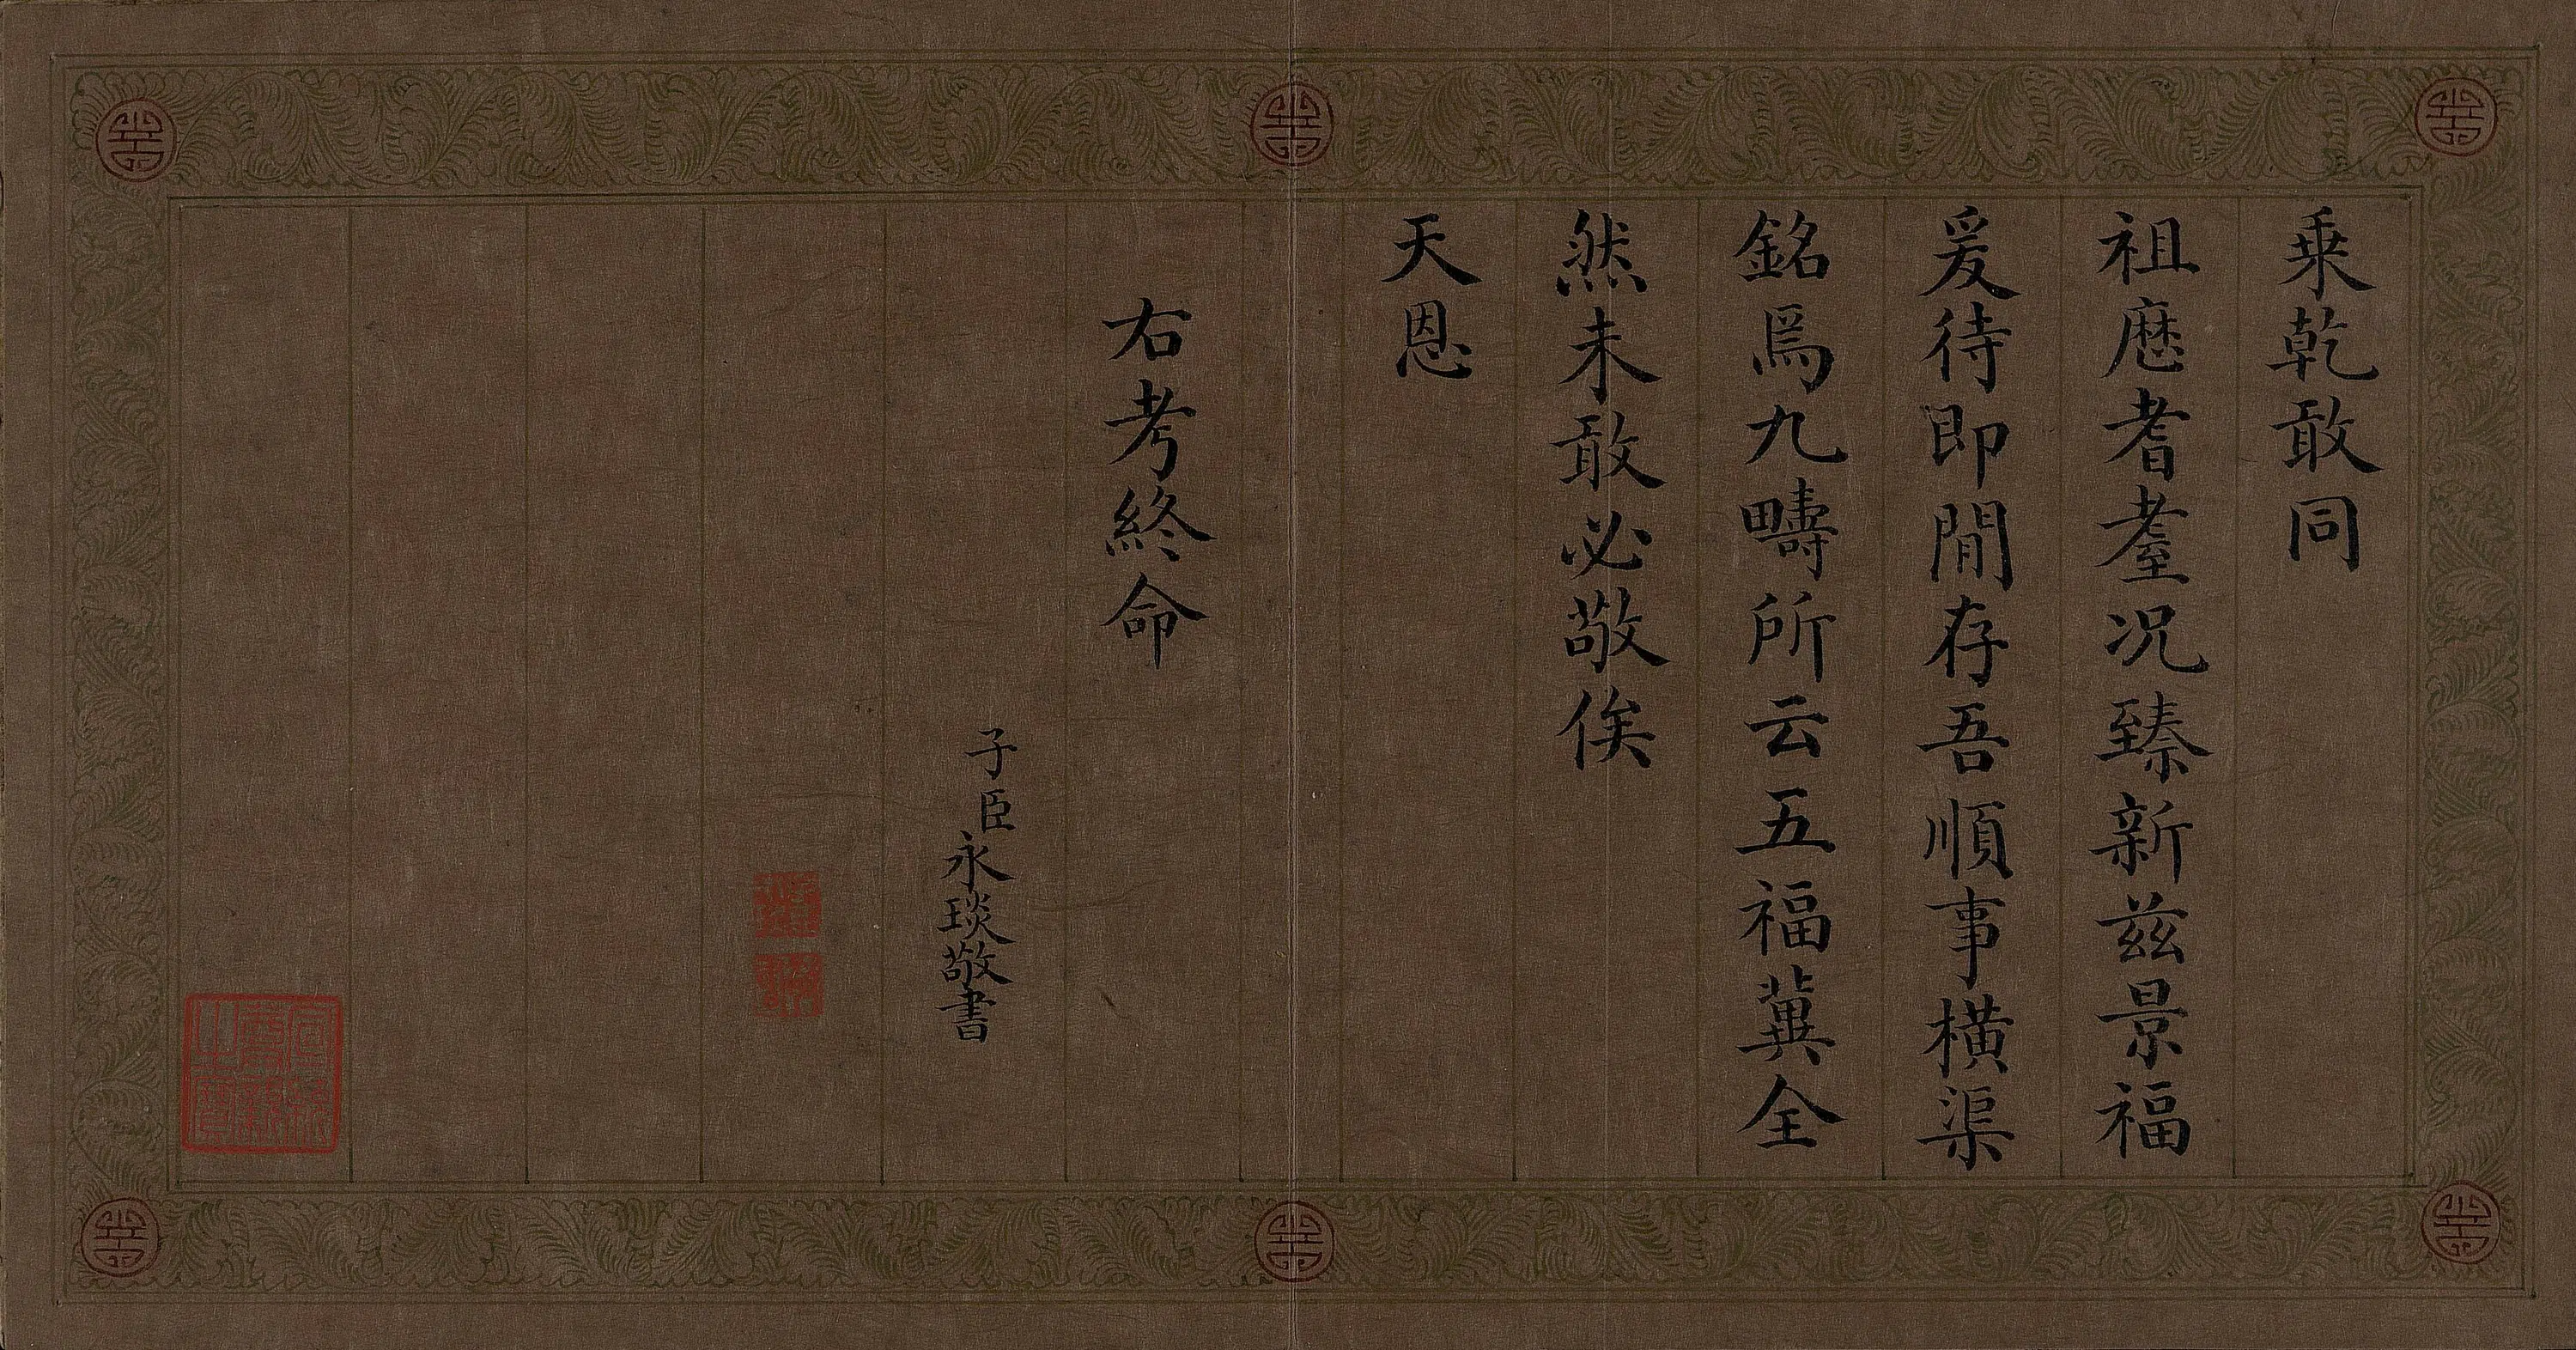 乗乾敢同
祖厯耆耋况臻新兹景福
爰待即間存吾順事橫渠
銘爲九疇所云五福冀全
然未敢必敬俟
天恩
右考終命
子臣永琰敬書